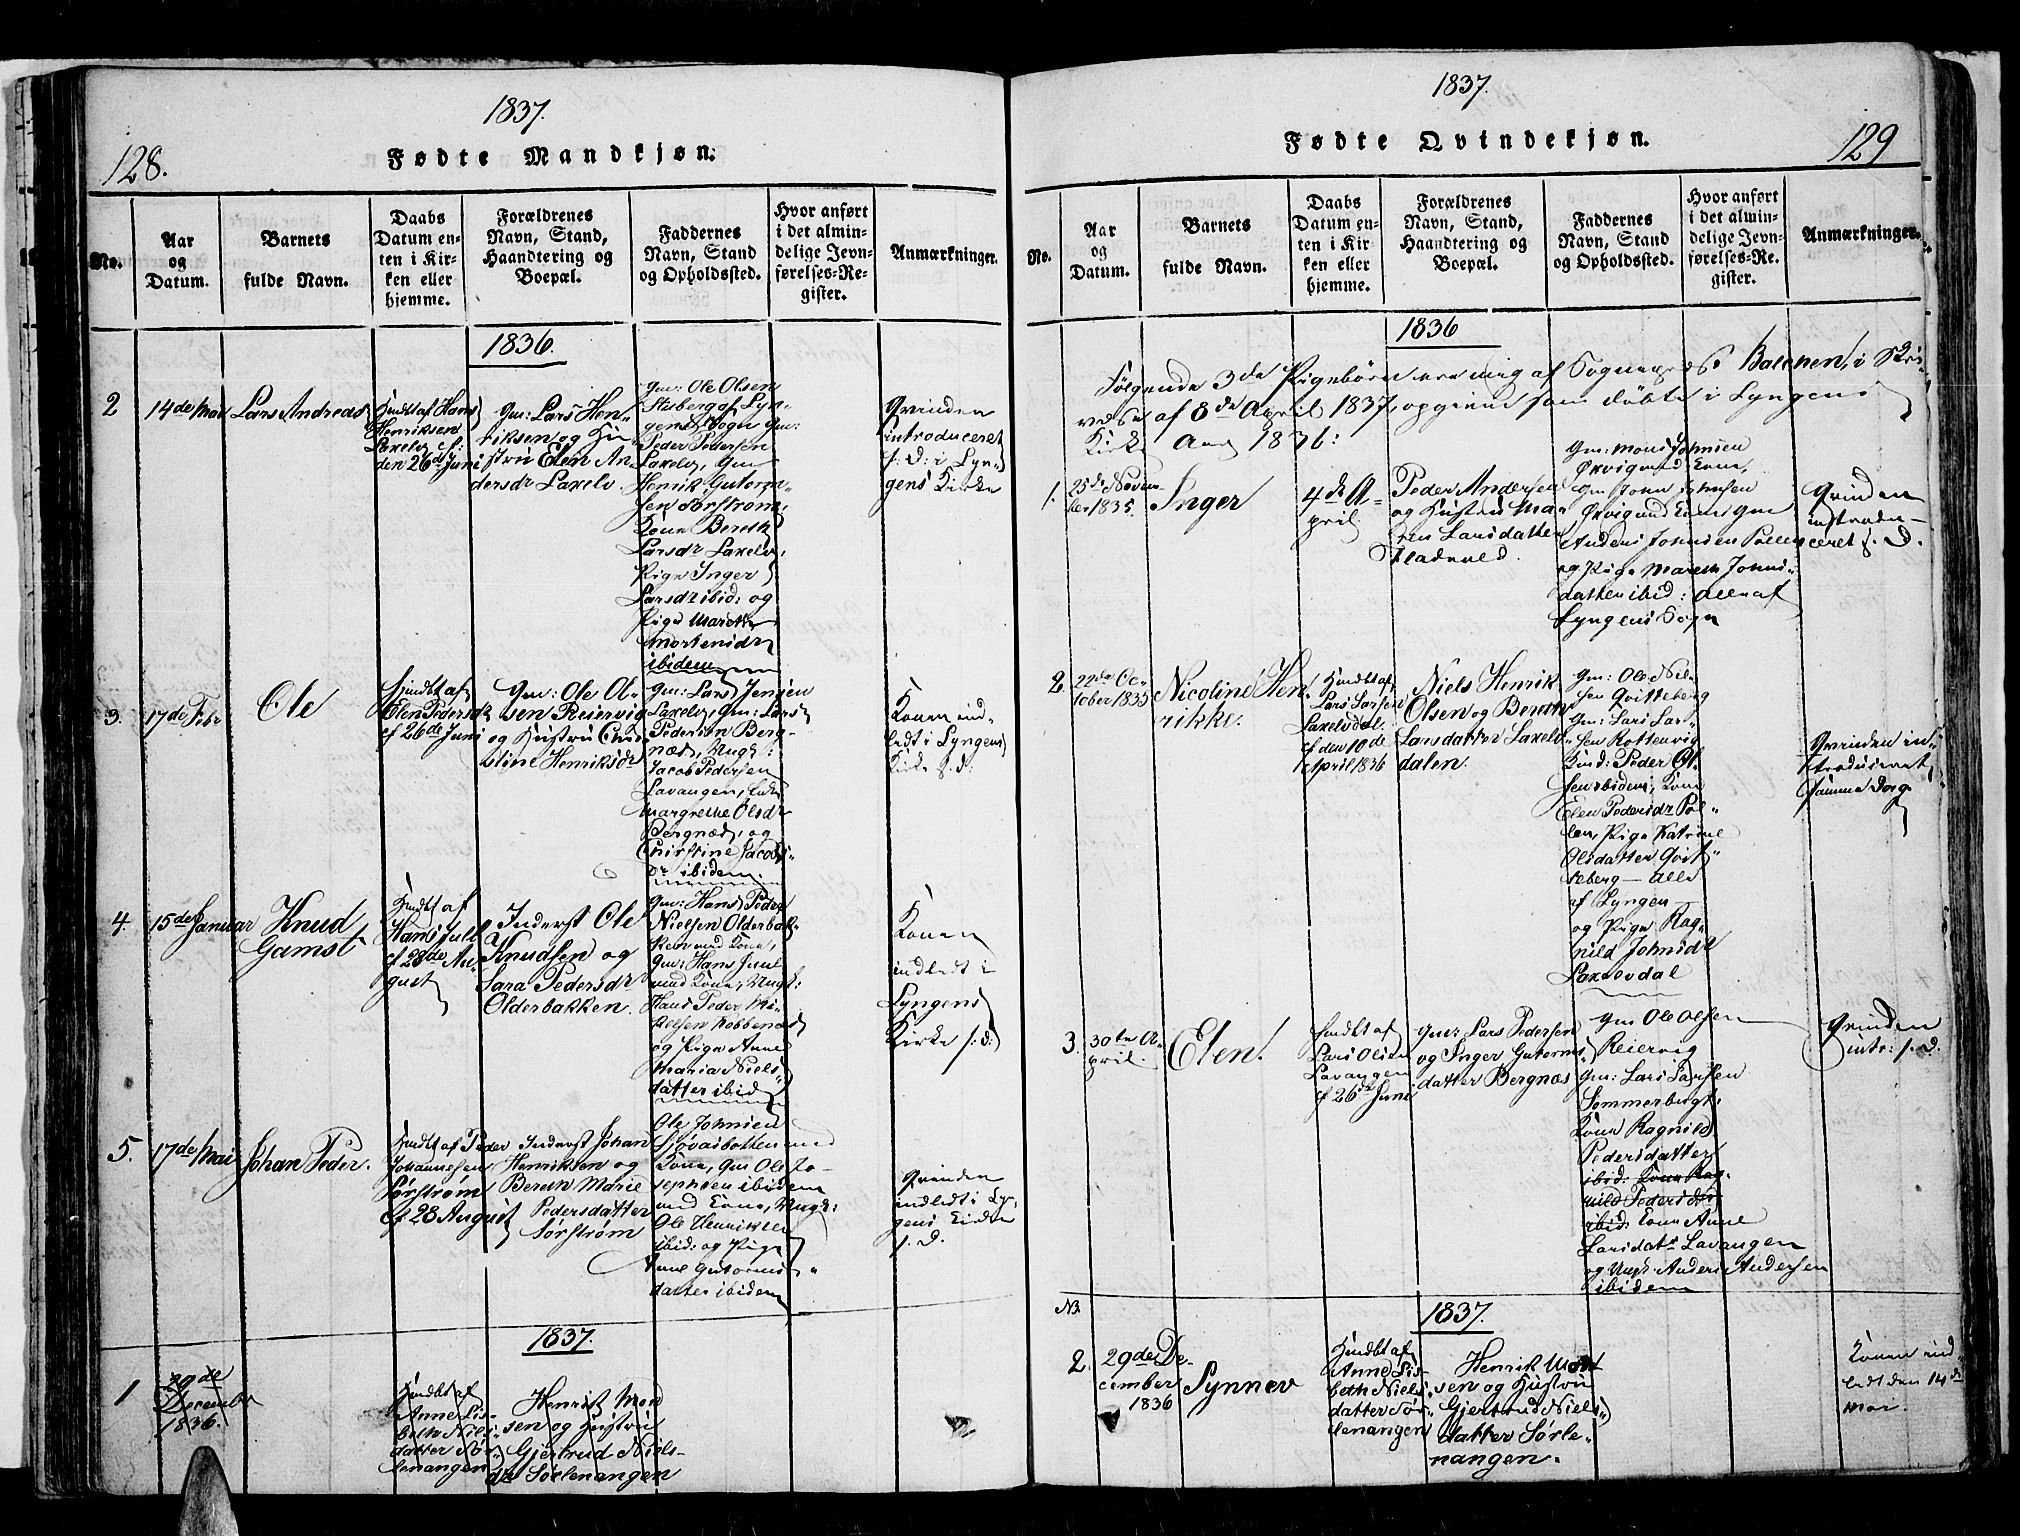 1837.
128.
Fødte Mandkjøn.
No.
Aar
og
Datum.
Barnets
fulde Navn.
Daabs
Datum en-
ten i Kir-
ken eller
hjemme.
Forældrenes
Navn, Stand,
Haandtering og
Boepæl.
Faddernes
Navn, Stand
og Opholdssted.
Hvor anført
i det almin-
delige Jevn-
førelses-Re-
gister.
Anmærkninger.
1836.
2
14de Mai
Lars Andreas
Hiemdbt af Hans
Henriksen
Laxelv cf:
den 26de Juni
Gm: Lars Hen-
riksen og Hu-
stru Elen An-
dersdr Laxelv.
Gm: Ole Olsen
af Lyn-
gens Sogn Gm:
Peder Pedersen
Laxelv, Gm
Henrik Gutorm-
sen Sørstrøm,
Kone Bereth
Larsdr Laxelv,
Pige Inger
Larsdr ibid: og
Pige Mareth
Mortensdr
ibidem
Qvinden
introduceret
s: D: i Lyn-
gens Kirke
3.
17de Febr
Ole
Hjemdbt af
Elen Pedersdr
cf 26de Juni
Gm: Ole Ol-
sen Reiervig
og Hustru Chri-
stine Henriksdr
Gm: Lars Jensen
Laxelv, Gm: Lars
Pedersen Berg-
næs, Ungk:
Jacob Pedersen
Lavangen,
Margrethe Olsdr
Bergnæs, og
Christine Jacobs-
dr ibidem.
Konen ind-
ledt i Lyngens
Kirke s: d:
4.
15de Januar
Knud
Gamst
Hiemdbt af
Hans Jull
cf 28de Au-
gust
Inderst Ole
Knudsen og
Sara Pedersdr
Olderbakken.
Gm: Hans Peder
Nielsen Olderbak-
ken med Kone,
Gm: Hans Juul
med Kone, Ungk:
Hans Peder Ni-
elsen Kobbenæs
og Pige Anne
Maria Niels-
datter ibid
Konen
indledt i
Lyngens
Kirke s: d:
5.
17de Mai
Johan Peder.
Hiemdbt af Peder
Johannesen
Sørstrøm
cf 28 August
Inderst Johan
Henriksen og
Bereth Marie
Pedersdatter
Sørstrøm
Ole Johnsen
Sjøvasbotten med
Kone, Gm Ole Jo-
sephsen ibidem
med Kone, Ungk:
Ole Henriksen
ibid: og Pige
Anne Gutorms-
datter ibidem
Qvinden
indledt i Lyn-
gens Kirke
s. D.
1837.
1
29de
December
1836.
Hiemdbt af
Anne Lis-
beth Niels-
datter Sør-
lenangen
Henrik Mon
sen og Hustru
Gjertrud Niels-
dtr Sørlenangen
1837.
129
Fødte Qvindekjøn.
No.
Aar
og
Datum.
Barnets
fulde Navn.
Daabs
Datum en-
ten i Kir-
ken eller
hjemme.
Forældrenes
Navn, Stand,
Haandtering og
Boepæl.
Faddernes
Navn, Stand
og Opholdssted.
Hvor anført
i det almin-
delige Jevn-
førelses-Re-
gister.
Anmærkninger.
1836
Følgende 3de Pigebørn ere mig af Sogneprest Balchen, i Skri-
velse af 8de April 1837, opgivne som døbte i Lyngens
Kirke Aar 1836:
1.
25de Novem-
ber 1835.
Inger
4de A-
pril.
Peder Andersen
og Hustru Ma-
ren Larsdatter
Gm: Mons Johnsen
Ørvig med Kone,
Gm John Johnsen
Ørvig med Kone, Gm
Anders Johnsen Pollen
og Pige Mareth Johns-
datter ibid: alle af
Lyngens Sogn
Qvinden
introdu-
ceret s. D.
2
22de Oc-
tober 1835
Nicoline Hen-
rikke.
Hiemdbt af
Lars Larsen
Laxelvdal.
cf den 10de
April 1836
Niels Henrik
Olsen og Bereth
Larsdatter Laxelv
dalen.
Gm: Ole Niel-
sen Qvitteberg
Gm: Lars Lar-
sen Rottenvig
Peder Ol-
sen ibidem, Kone
Elen Pedersdr Pol-
len, Pige Katrine
Olsdatter Qvit-
teberg — alle
af Lyngen
og Pige Rag-
nild Johnsdr
Laxelvdal
Qvinden in-
troduceret
samme Dag
3.
30te A-
pril.
Elen.
Hiemdbt af
Lars Olsen
Lavangen
cf 26de Juni
Gm: Lars Pedersen
og Inger Gutorms-
datter Bergnæs
Gm Ole Olsen
Reiervig
Gm: Lars Larsen
Sommerbugt,
Kone Ragnild
Pedersdatter
ibid: Kone Rag-
nild Pedersdtr
ibid: Kone Anne
Larsdatr Lavangen
og Ungk: Anders Andersen
ibidem
Qvinden
intr: s. D.
No.
1837.
2.
29de De-
cember
1836
Synnev
Hiemdbt af
Anne Lis-
beth Niels-
datter Sør-
lenangen
Henrik Mont
sen og Hustru
Gjertrud Niels-
datter Sørle-
nangen.
Konen ind-
ledt den 14de
Mai.